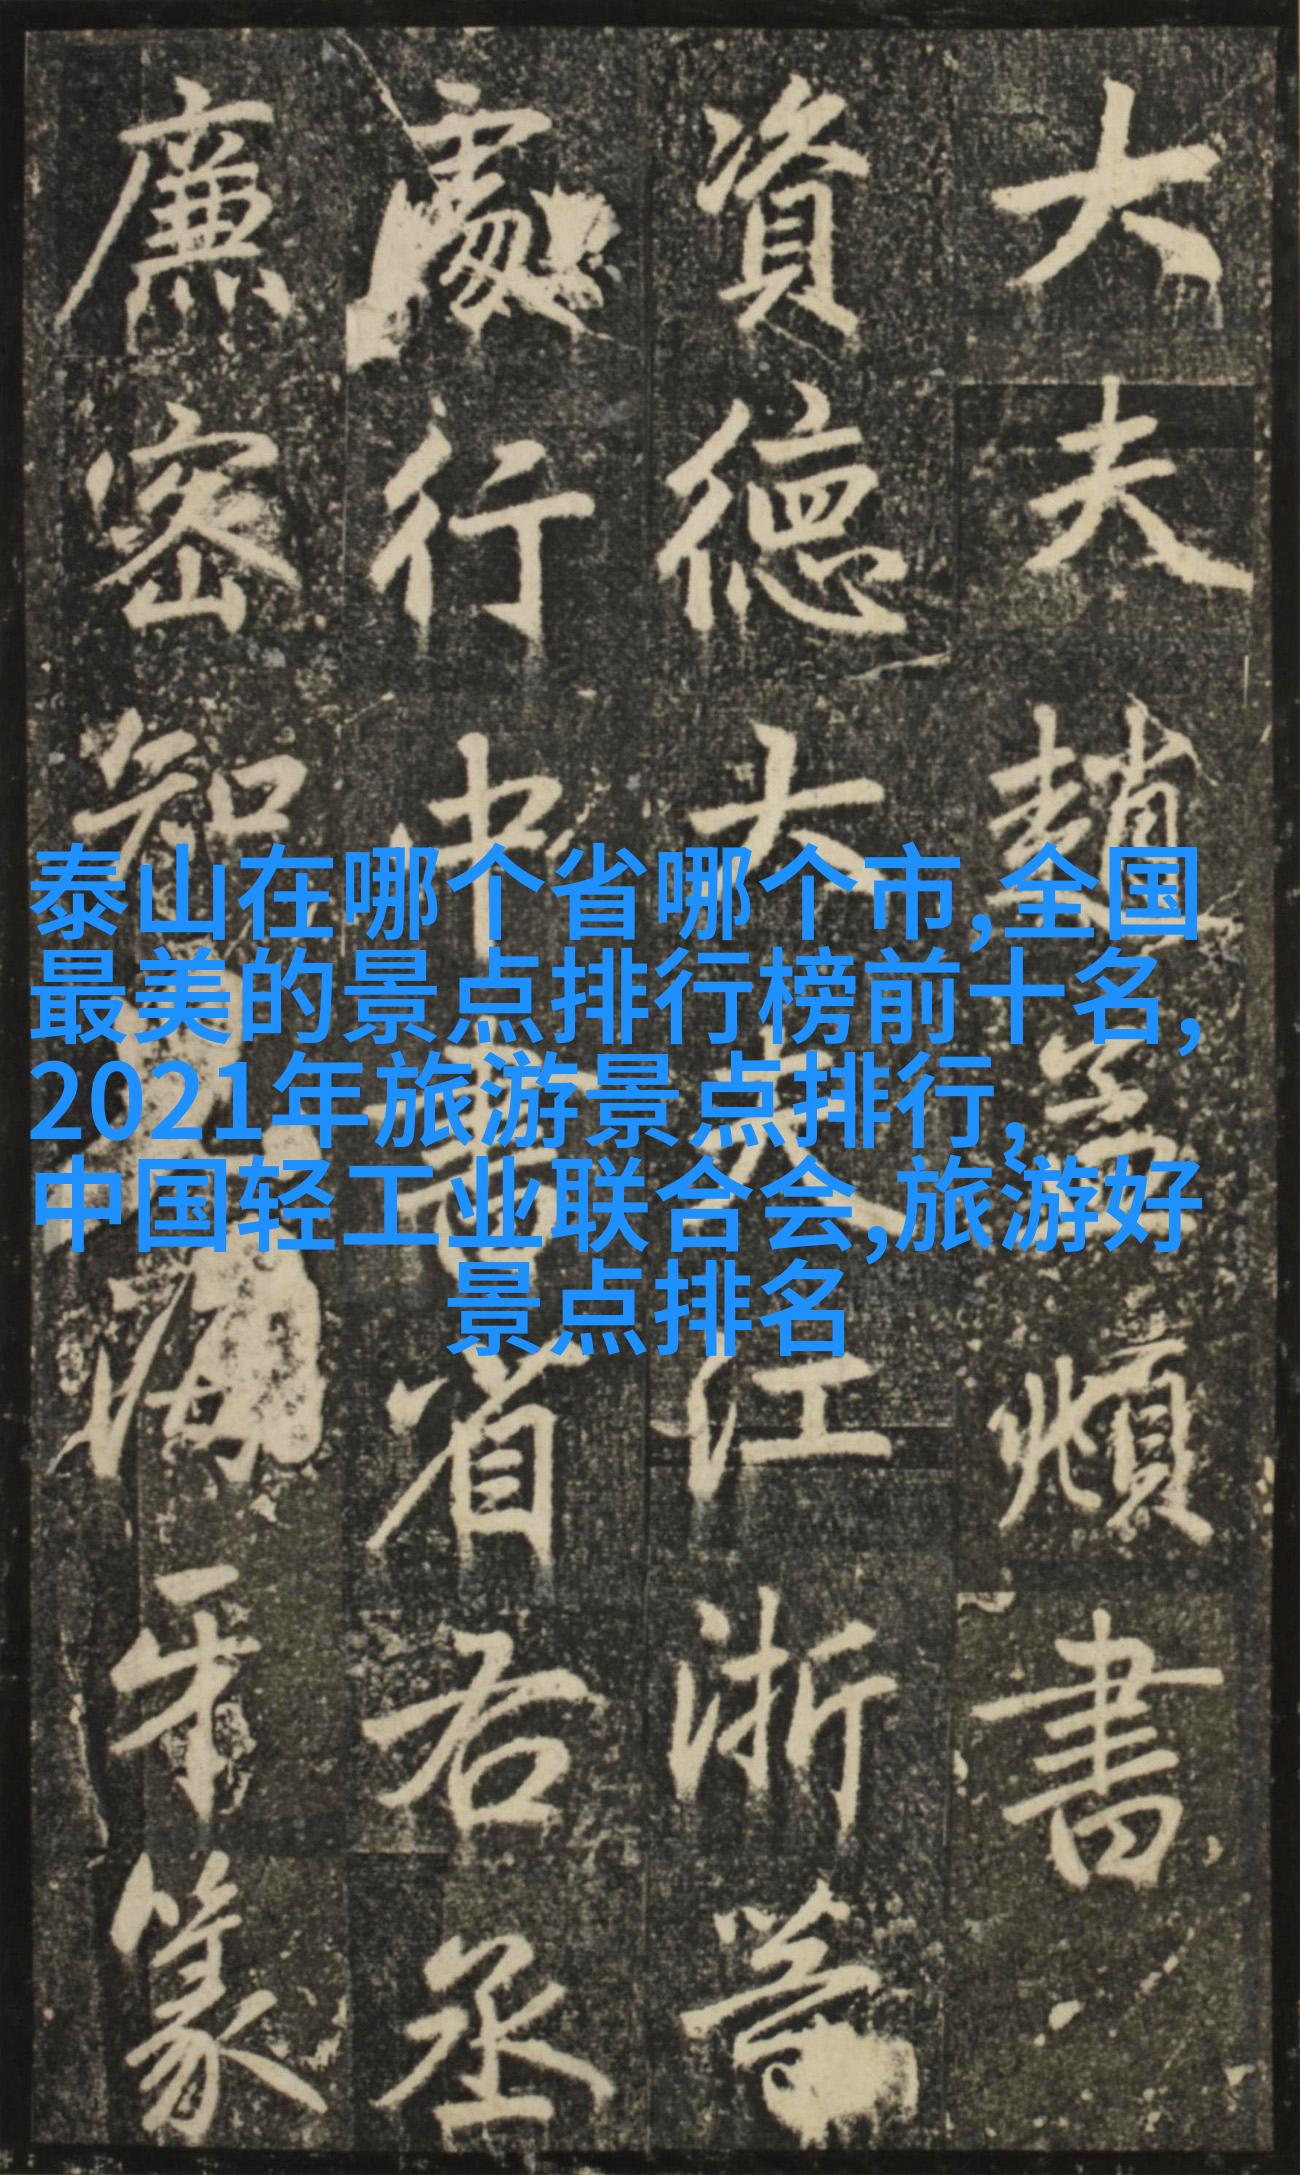 大夫趙孟頫書
資德大夫江浙等
處行中書省右丞
廉密知海牙篆
泰山在哪个省哪个市,全国
最美的景点排行榜前十名,
2021年旅游景点排行,
中国轻工业联合会,旅游好
景点排名